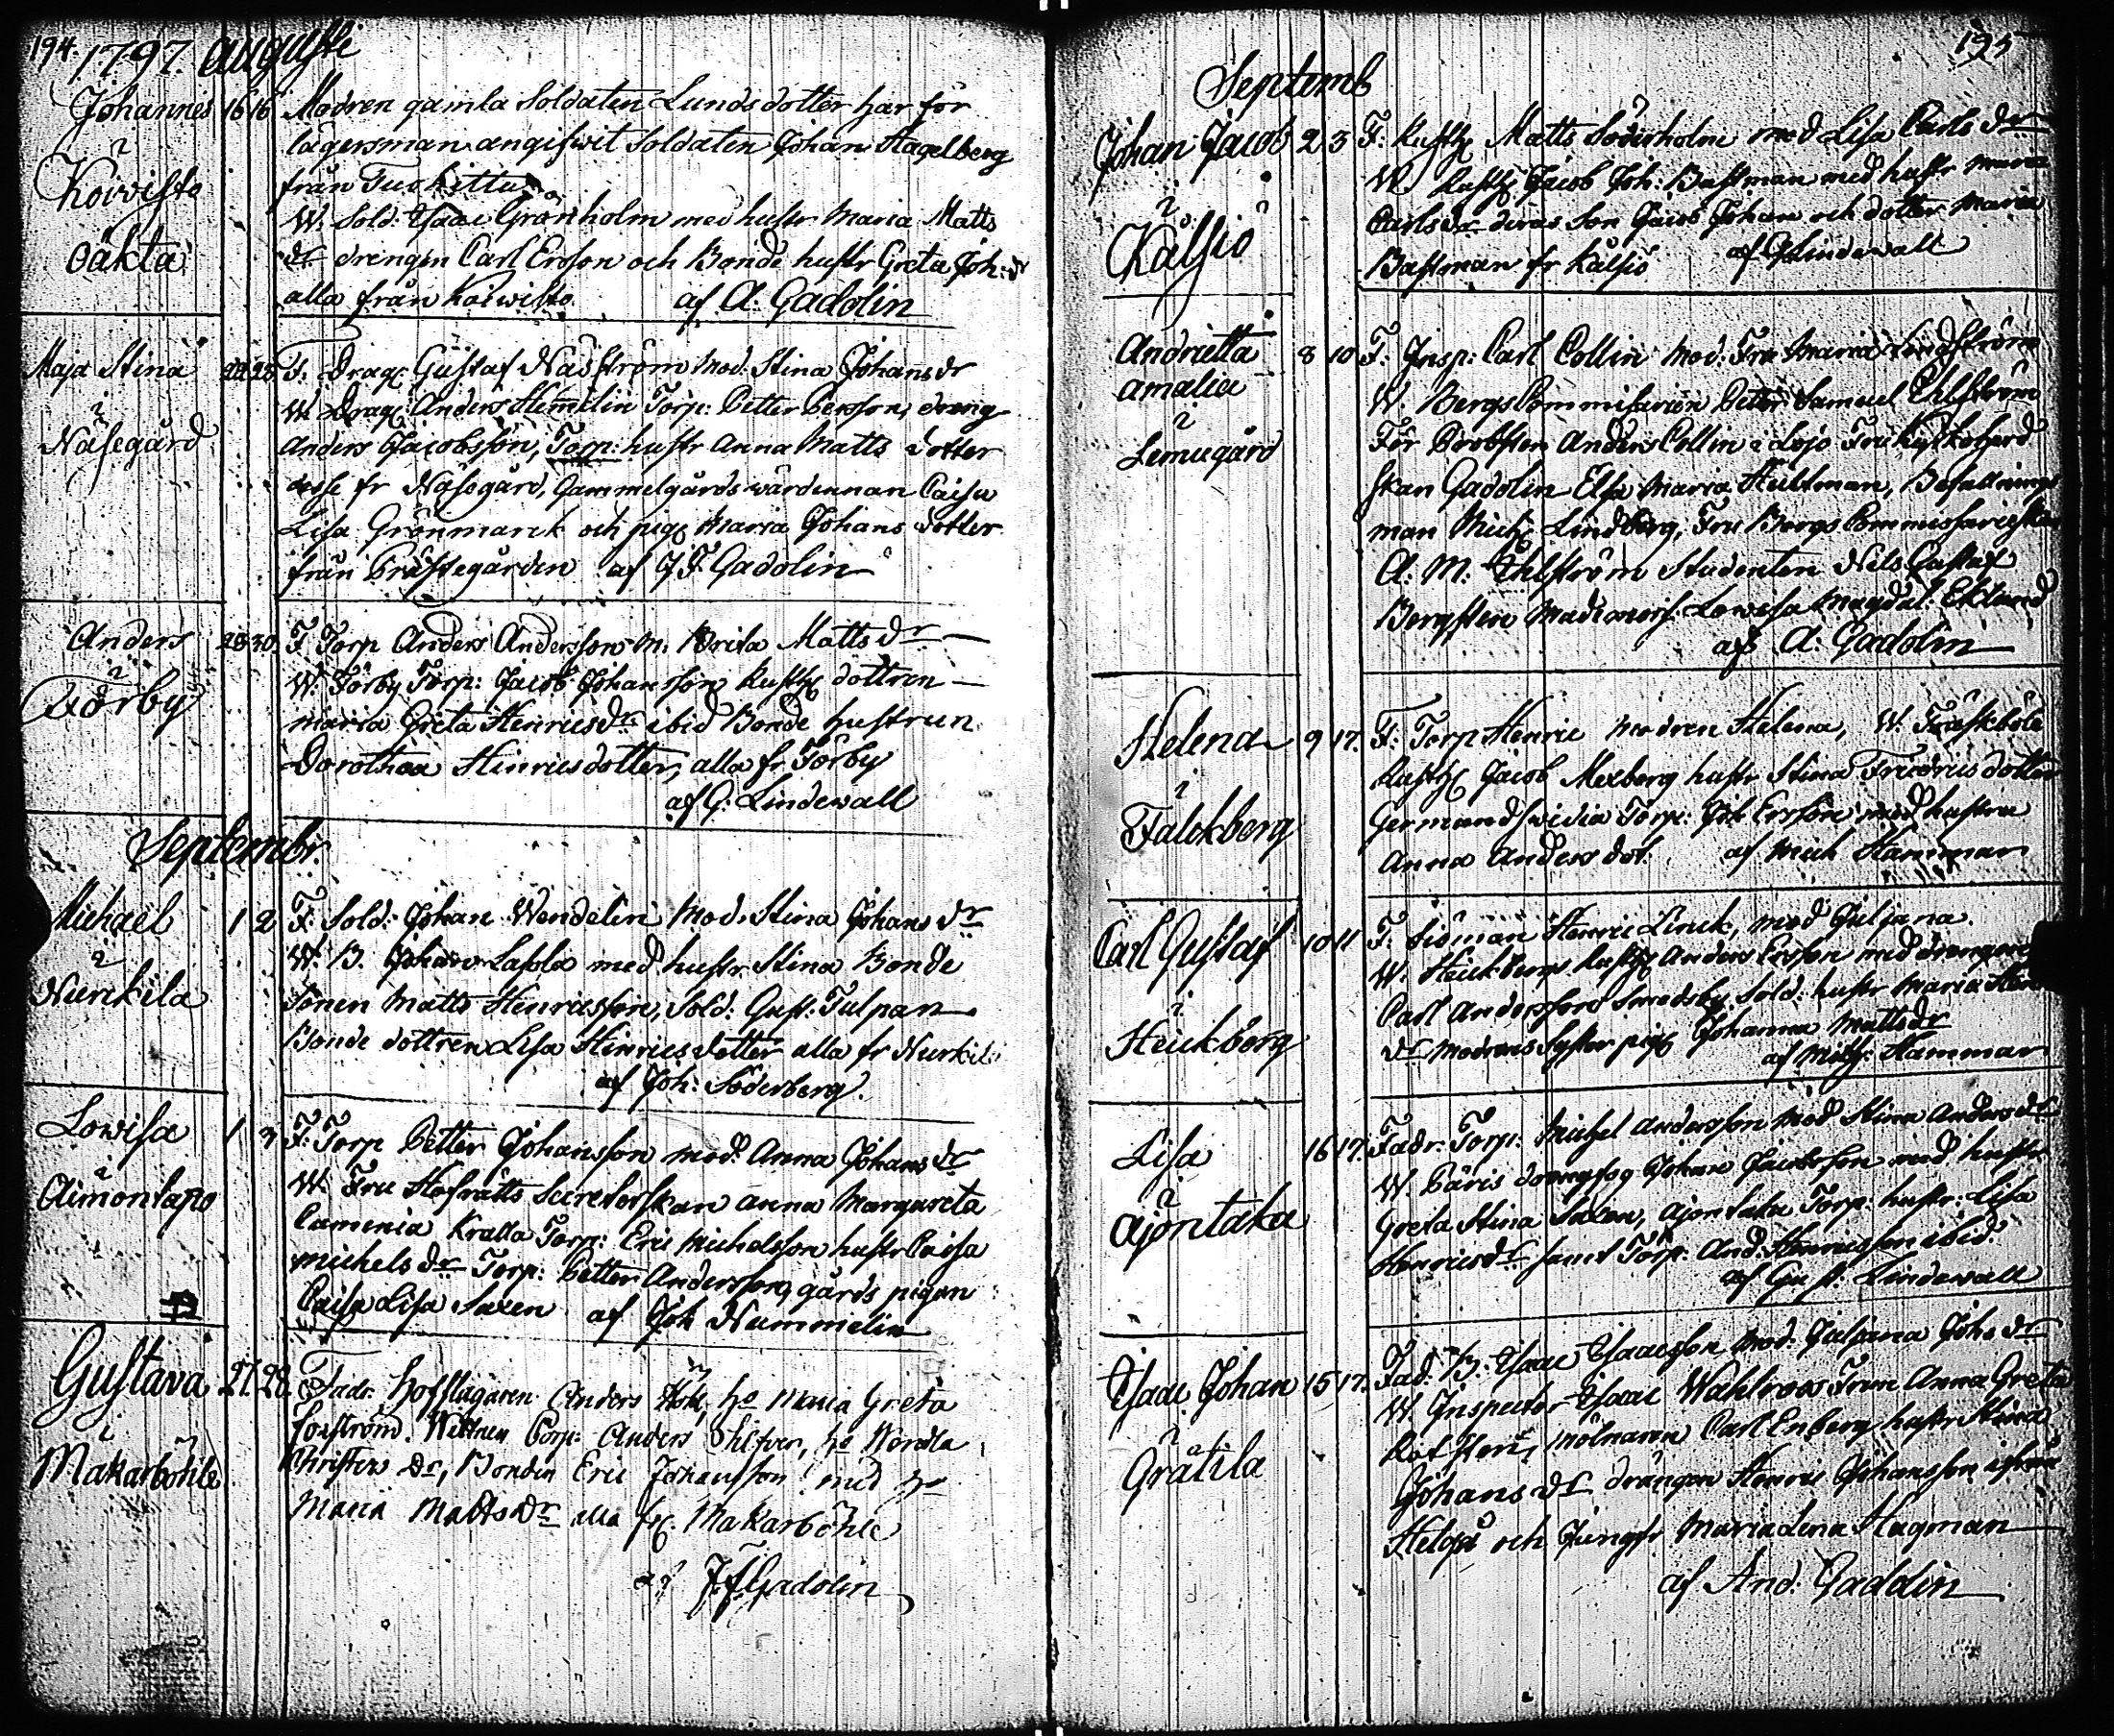 194. 1797. Augusti
Johannes 16 16 Modren gamla Soldaten Lunds dotter har för
lägersman angifwit Soldaten Johan Hagelberg
i från Tuskittu
Koivisto W. Sold: Isaac Grönholm med hustr Maria Matts
oäkta dr drengen Carl Ersson och Bonde hustr Greta Joh: dr
alla från Koiwisto af A. Gadolin
Maja Stina 22 25 F. Drag: Gustaf Näsström Mod. Stina Johans dr
i W. Drag: Anders Hemelin Torp: Petter Persson, dreng
Näsegård Anders Jacobsson, Torp: hustr Anna Matts dotter
desse fr Näsegård, Gammelgårds wärdinnan Caisa
Lisa Grönmarck och pig Maria Johans dotter
från Prästegården af J F. Gadolin
Anders 28 30 F Torp Anders Andersson M. Brita Matts dr
i W. Förby Torp: Jacob Johansson Rusth dottren
Förby Maria Greta Henricsdr ibid Bonde hustrun
Dorothea Hinricsdotter, alla fr Förby
af G: Lindewall
Septembr.
Michael 1 2 F. Sold: Johan Wendelin Mod. Stina Johans dr
i W. B. Johan Lassla med hustr Stina Bonde
Nurckila Sonen Matts Henricsson, Sold: Gust: Tulpan
Bonde dottren Lisa Hinricsdotter alla fr Nurkila
af Joh: Söderberg.
Lowisa 1 3 F: Torp Petter Johansson mod: Anna Johans dr
i W. Fru Hofrätts Secreterskan Anna Margareta
Aimontapo Camenia Kralla Torp: Eric Michelsson hustr Caisa
Michels dr Torp: Petter Andersson, gårds pigan
Caisa Lisa Saxen af Joh Nummelin
Gustava 27. 28. Fadr. Hofslagaren Anders Hök, ho Maria Greta
i Forström. Wittnen Corp: Anders Silfver, ho
Makarböhle Christin dr, Bonden Eric Johansson med ho
Maria Mattsdr alla fr. Makarböhle
af J. F. Gadolin
195
Septemb
Johan Jacob 2 3 F: Rusth Matts Söderholm mod Lisa Carls dr
i W. Rusth Jacob Joh: Bastman med hustr Maria
Kälsiö Carlsdr deras Son Jacob Johan och dotter Maria
Bastman fr Kälsiö af G Lindewall
Andrietta 8 10 F: Insp: Carl Collin Mod: Fru Maria Lindström
Amalia W BergsCommisarien Petter Samuel Ehlström
i För Probsten Anders Collin i Lojo Fru Kyrkoherd
Lemugård skan Gadolin Elsa Maria Hultman, Befallnings
man Mich Lindberg, Fru BergsCommissarieskan
A: M: Ehlström Studenten Nils Gustaf
Bergsten Mademois: Lowisa Magdal: Eklund
af A: Gadolin
Helena 9 17. F. Torp Henric modren Helena, W. Träskböle
i Rusth Jacob Mexberg hustr Stina Fridricsdotter
Falckberg Germundswidia Torp: Joh Ersson med hustru
Anna Anders dot. af Mich Hammar
Carl Gustaf 10 11 F. Siöman Henric Linck, mod Juljana
i W. Heickbergs Rusth Anders Ersson med drengen
Heickberg Carl Andersson Smedsby Sold: hustr Maria Hen
dr modrens Syster pig Johanna Mattsdr
af Mich: Hammar
Lisa 16 17. Fadr: Torp: Michel Andersson Mod Stina Anders dr
i W. Päris Johan Jacobsson med hustr
Ajontaka Greta Stina Saxen, Ajontaka Torp: hustr: Lisa
Henricsdr samt Torp: And: Hinricsson ibid.
af Gust: Lindewall
Isaac Johan 15 17. Fad: B: Isaac Isaacsson Mod: Juljana Johs dr
i W. Inspector Isaac Wahlroos Frun Anna Greta
Grätila Rotsten, Mölnaren Carl Enberg hustr Stina
Johans dr drängen Henric Johansson ifrån
Helgså och Jungfr Maria Lena Hagman
af And: Gadolin